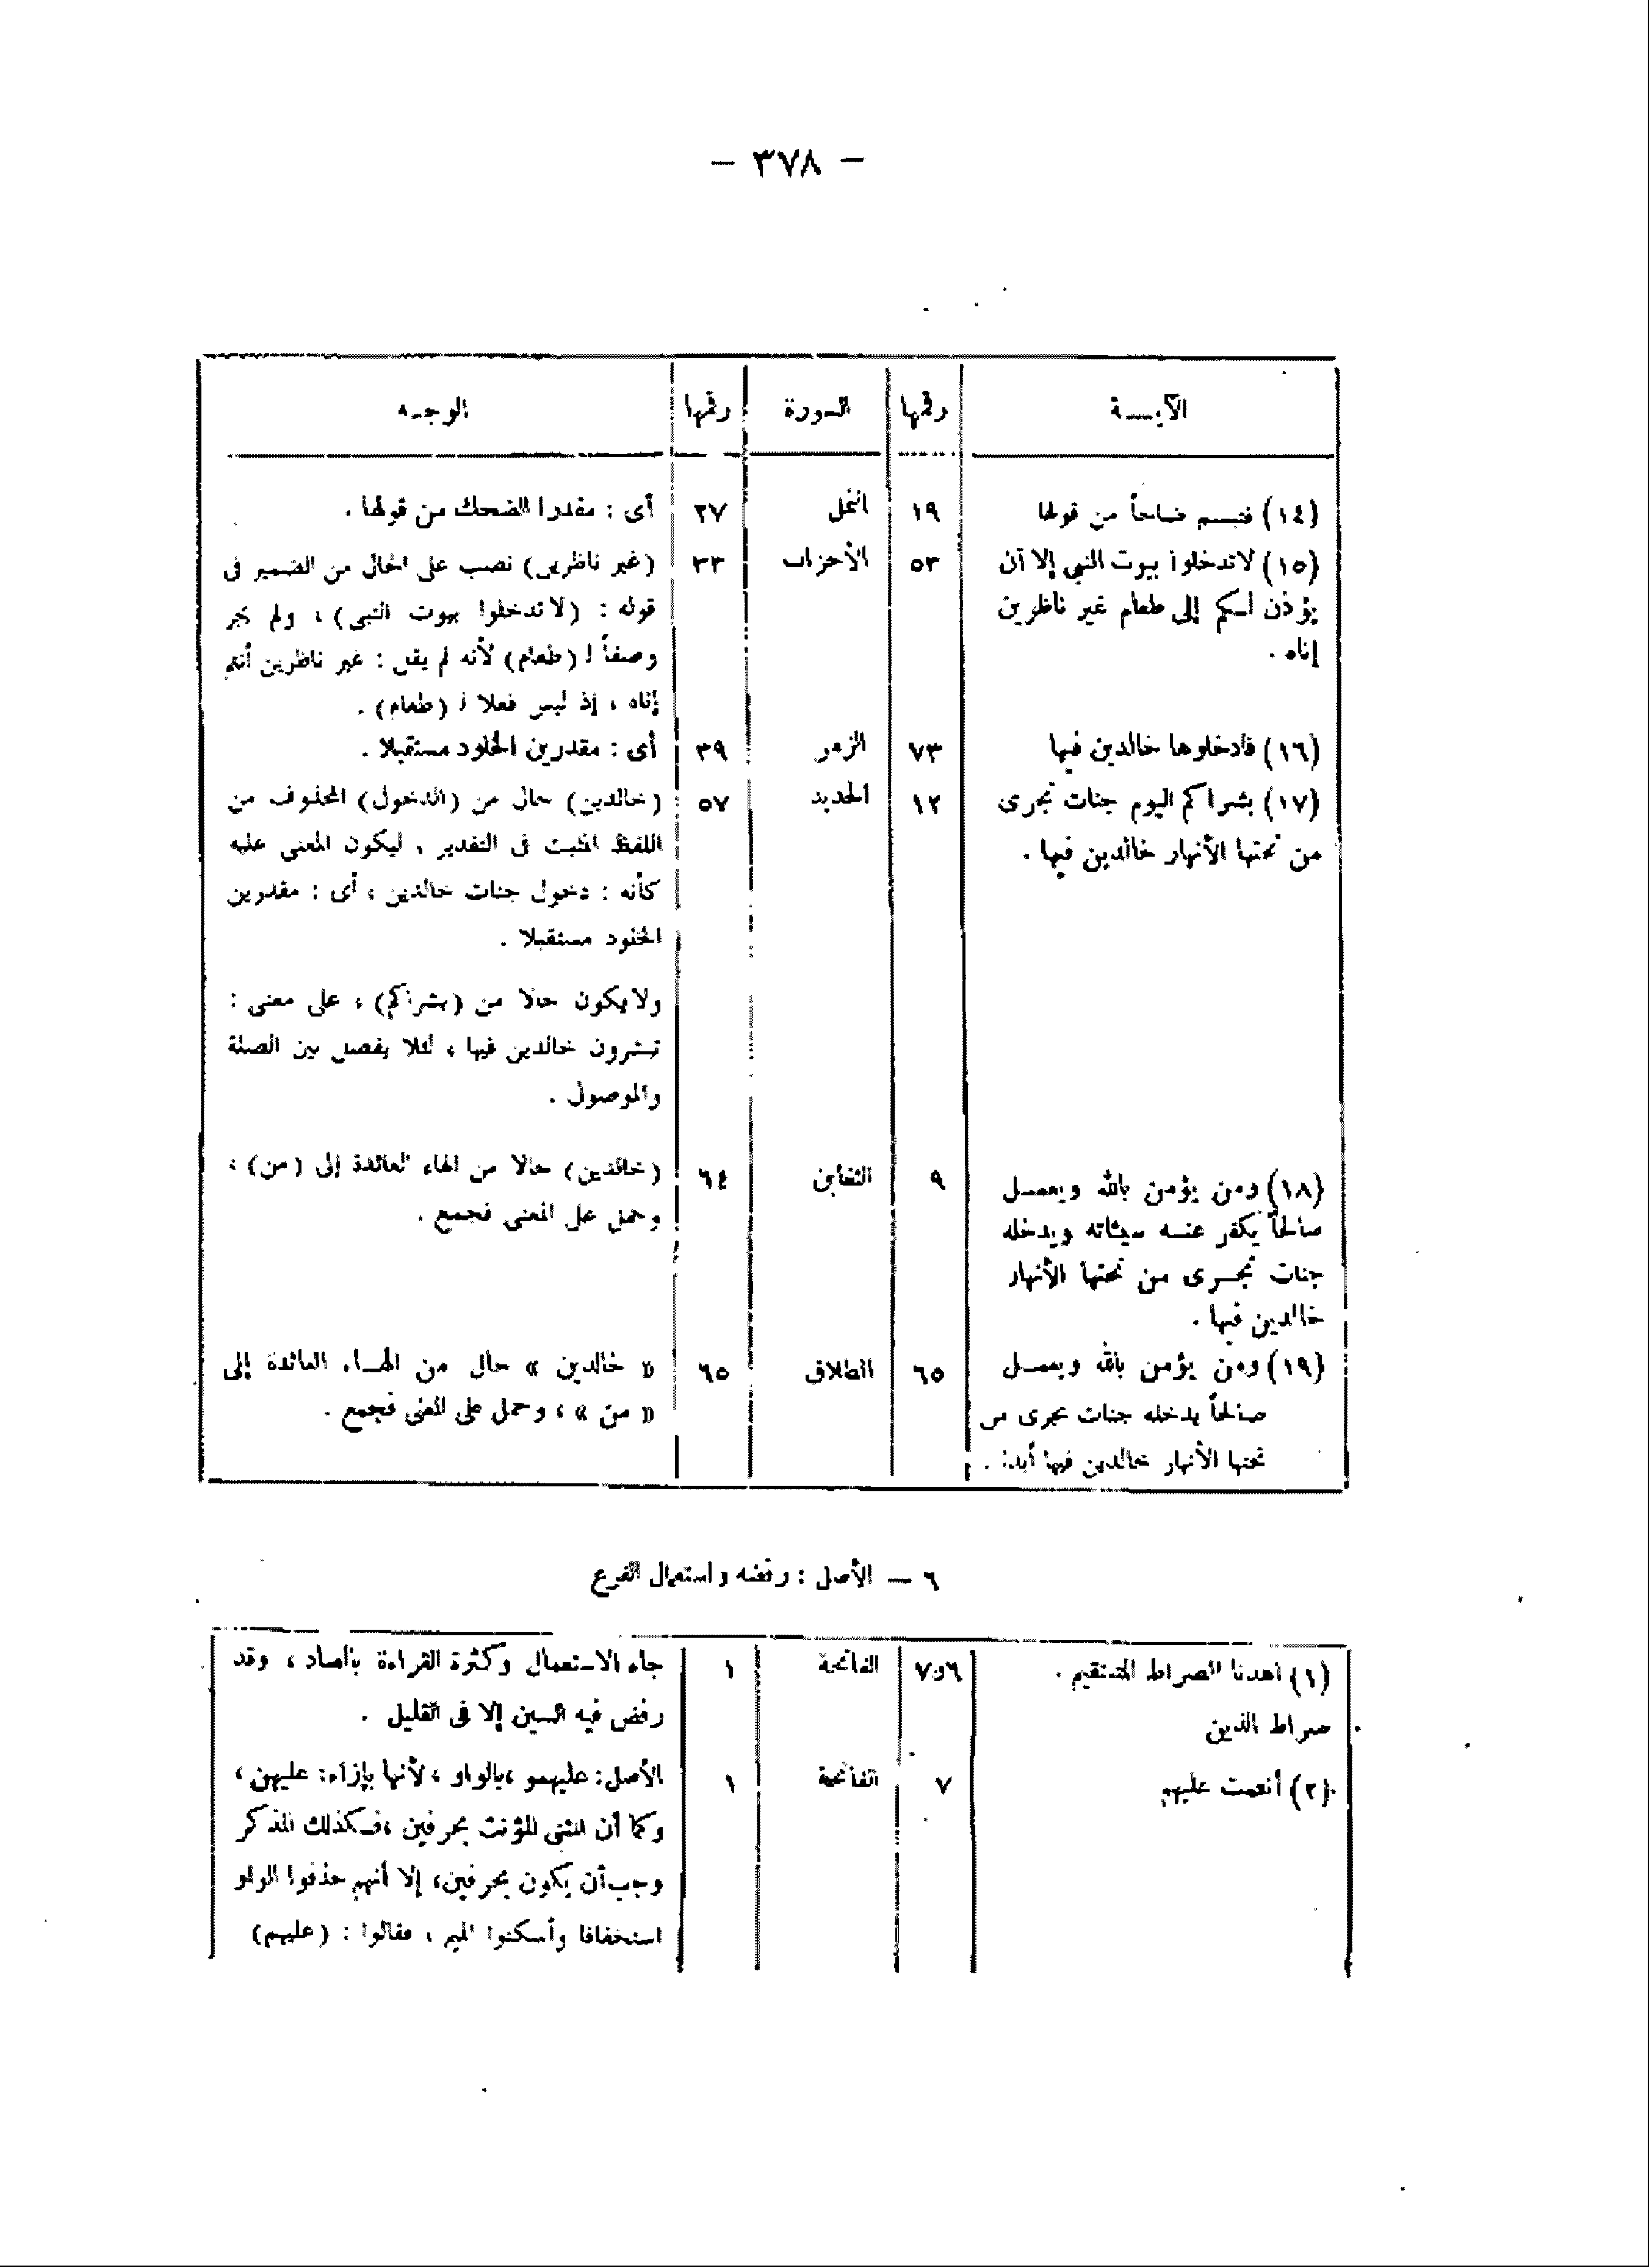 – ٣٧٨ –
الآيـــة رقمها السورة رقمها الوجـه
(١٤) فتبسم ضاحكاً من قولها ١٩ النمل ٢٧ أى : مقدرا الضحك من قولها .
(١٥) لاتدخلوا بيوت النبى إلا أن ٥٣ الأحزاب ٣٣ (غير ناظرين) نصب على الحال من الضمير فى
يؤذن لـكم إلى طعام غير ناظرين قوله : (لاتدخلوا بيوت النبى) ، ولم يجر
إناه . وصفاً لـ (طعام) لأنه لم يقل : غير ناظرين أنتم
إناه ، إذ ليس فعلا لـ (طعام) .
(١٦) فادخلوها خالدين فيها ٧٣ الزمر ٣٩ أى : مقدرين الخلود مستقبلا .
(١٧) بشراكم اليوم جنات تجرى ١٢ الحديد ٥٧ (خالدين) حال من (الدخول) المحذوف من
من تحتها الأنهار خالدين فيها . اللفظ المثبت فى التقدير ، ليكون المعنى عليه
كأنه : دخول جنات خالدين ، أى : مقدرين
الخلود مستقبلا .
ولايكون حالا من (بشراكم) ، على معنى :
تبشرون خالدين فيها ، لئلا يفصل بين الصلة
والموصول .
(١٨) ومن يؤمن بالله ويعمـل ٩ التغابن ٦٤ (خالدين) حالا من الهاء العائدة إلى (من) ،
صالحاً يكفر عنـه سيئاته ويدخله وحمل على المعنى فجمع .
جنات تجـرى من تحتها الأنهار
خالدين فيها .
(١٩) ومن يؤمن بالله ويعمـل ٦٥ الطلاق ٦٥ « خالدين » حال من الهـاء العائدة إلى
صالحاً يدخله جنات تجرى من « من » ، وحمل على المعنى فجمع .
تحتها الأنهار خالدين فيها أبدا .
٦ – الأصل : رفضه واستعمال الفرع
(١) اهدنا الصراط المستقيم . ٦و٧ الفاتحة ١ جاء الاستعمال وكثرة القراءة بالصاد ، وقد
صراط الذين رفض فيه السين إلا فى القليل .
(٢) أنعمت عليهم ٧ الفاتحة ١ الأصل : عليهمو ، بالواو ، لأنها بإزاء : عليهن ،
وكما أن المثنى المؤنث بحرفين ، فـكذلك المذكر
وجب أن يكون بحرفين ، إلا أنهم حذفوا الواو
استخفافا وأسكنوا الميم ، فقالوا : (عليهم)